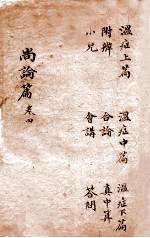 溫症上篇 溫症中篇 溫症下篇
附 合論 真中
小兒 會講 答問
尚論篇 卷四